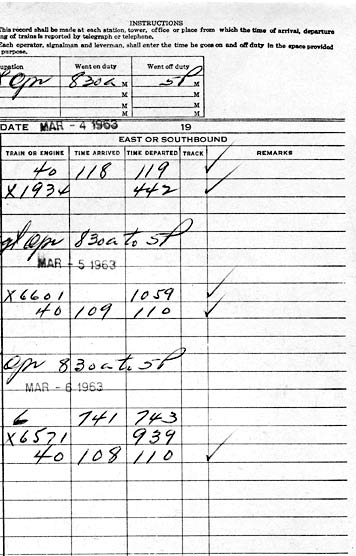 INSTRUCTIONS
This record shall be made at each station, tower, office or place from which the time of arrival, departure
ng of trains is reported by telegraph or telephone.
Each operator, signalman and leverman, shall enter the time he goes on and off duty in the space provided
purpose.
upation Went on duty Went off duty
Opr 830a M 5P M
M M
M M
DATE MAR - 4 1963 19
EAST OR SOUTHBOUND
TRAIN OR ENGINE TIME ARRIVED TIME DEPARTED TRACK REMARKS
40 118 119 ✓
X1934 442 ✓
Opr 830a to 5P
MAR - 5 1963
X6601 1059 ✓
40 109 110 ✓
Opr 830a to 5P
MAR - 6 1963
6 741 743
X6571 939
40 108 110 ✓